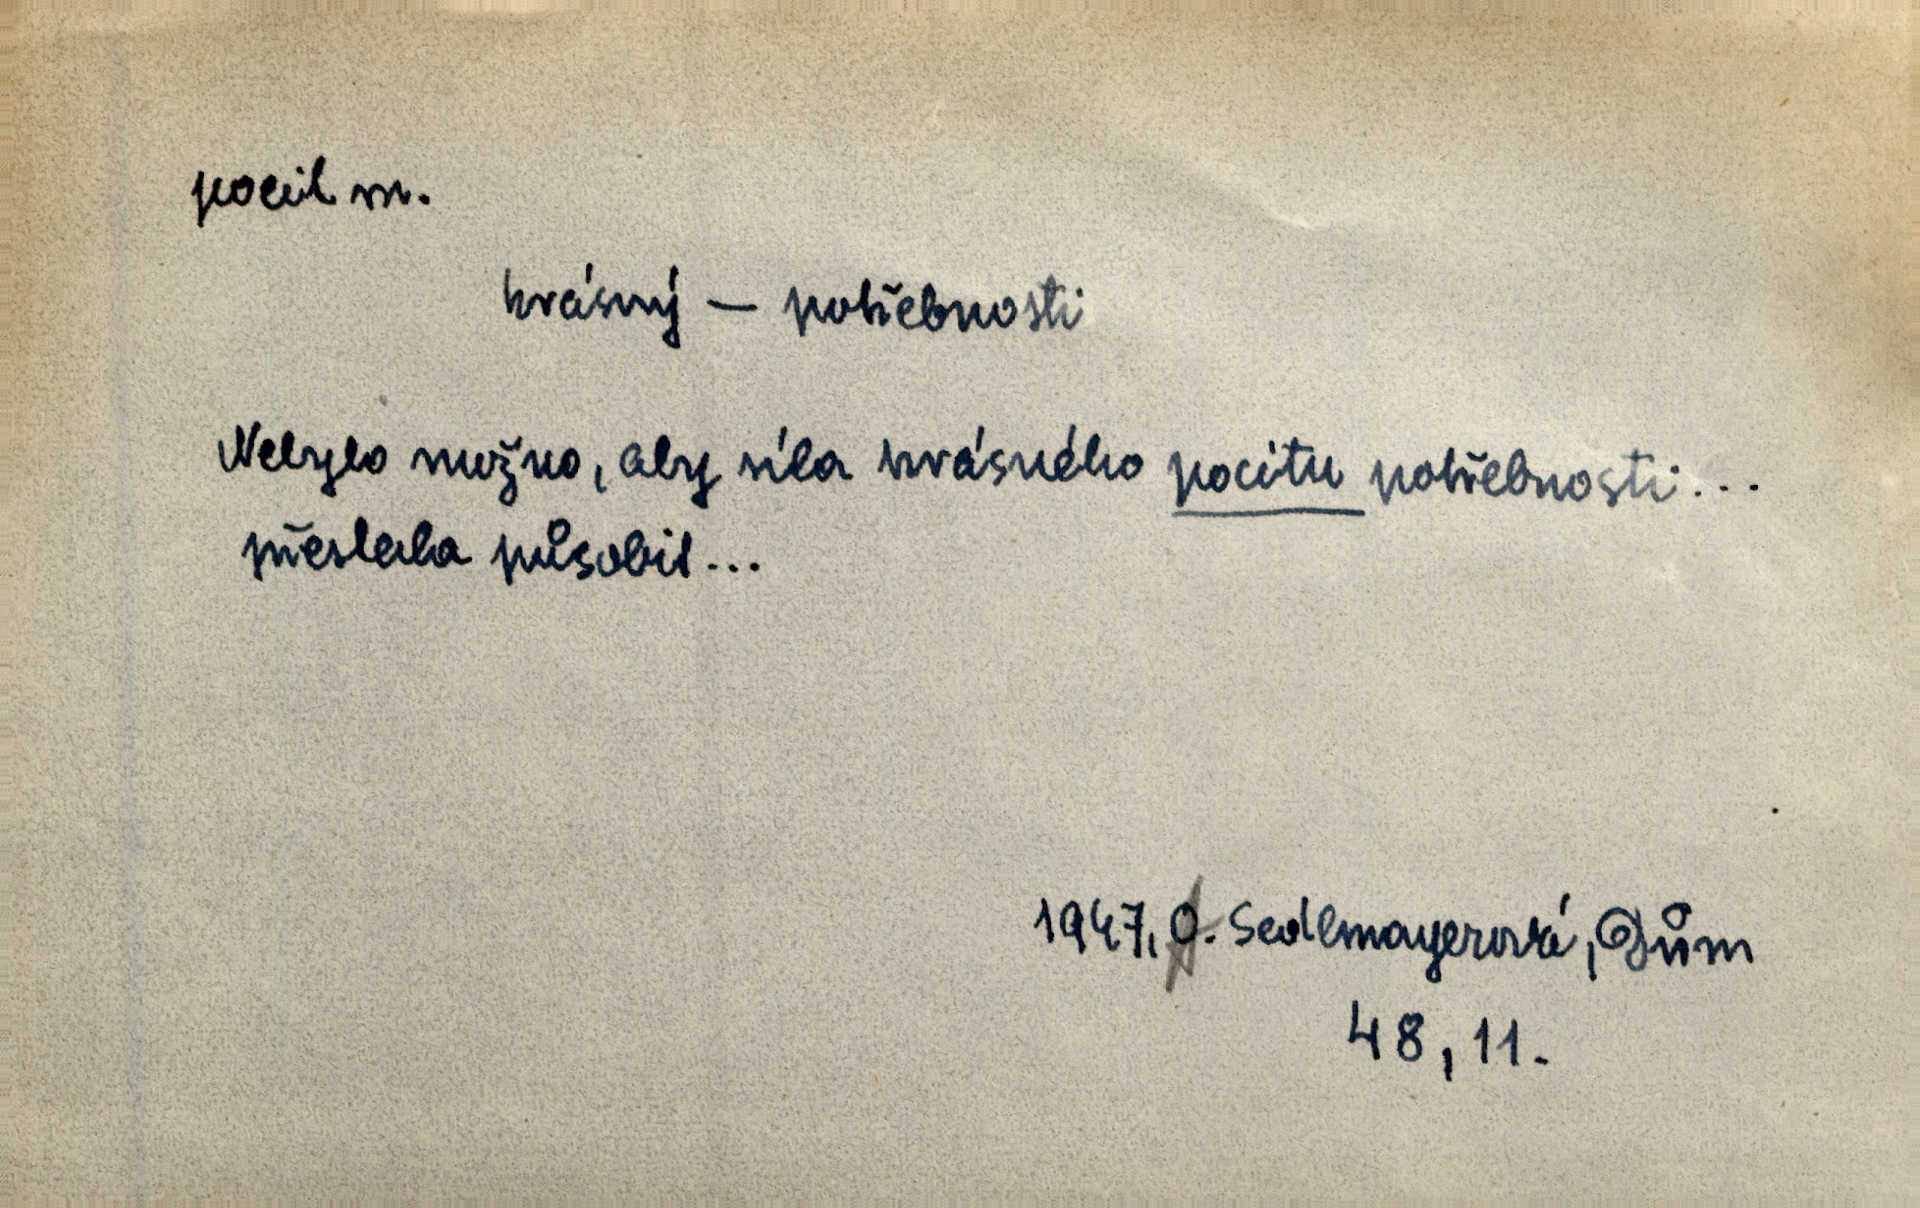 pocit m.
krásný — potřebnosti
Nebylo možno, aby síla krásného pocitu potřebnosti...
přestala působit...
1947, A. Sedlmayerová, Dům
48, 11.